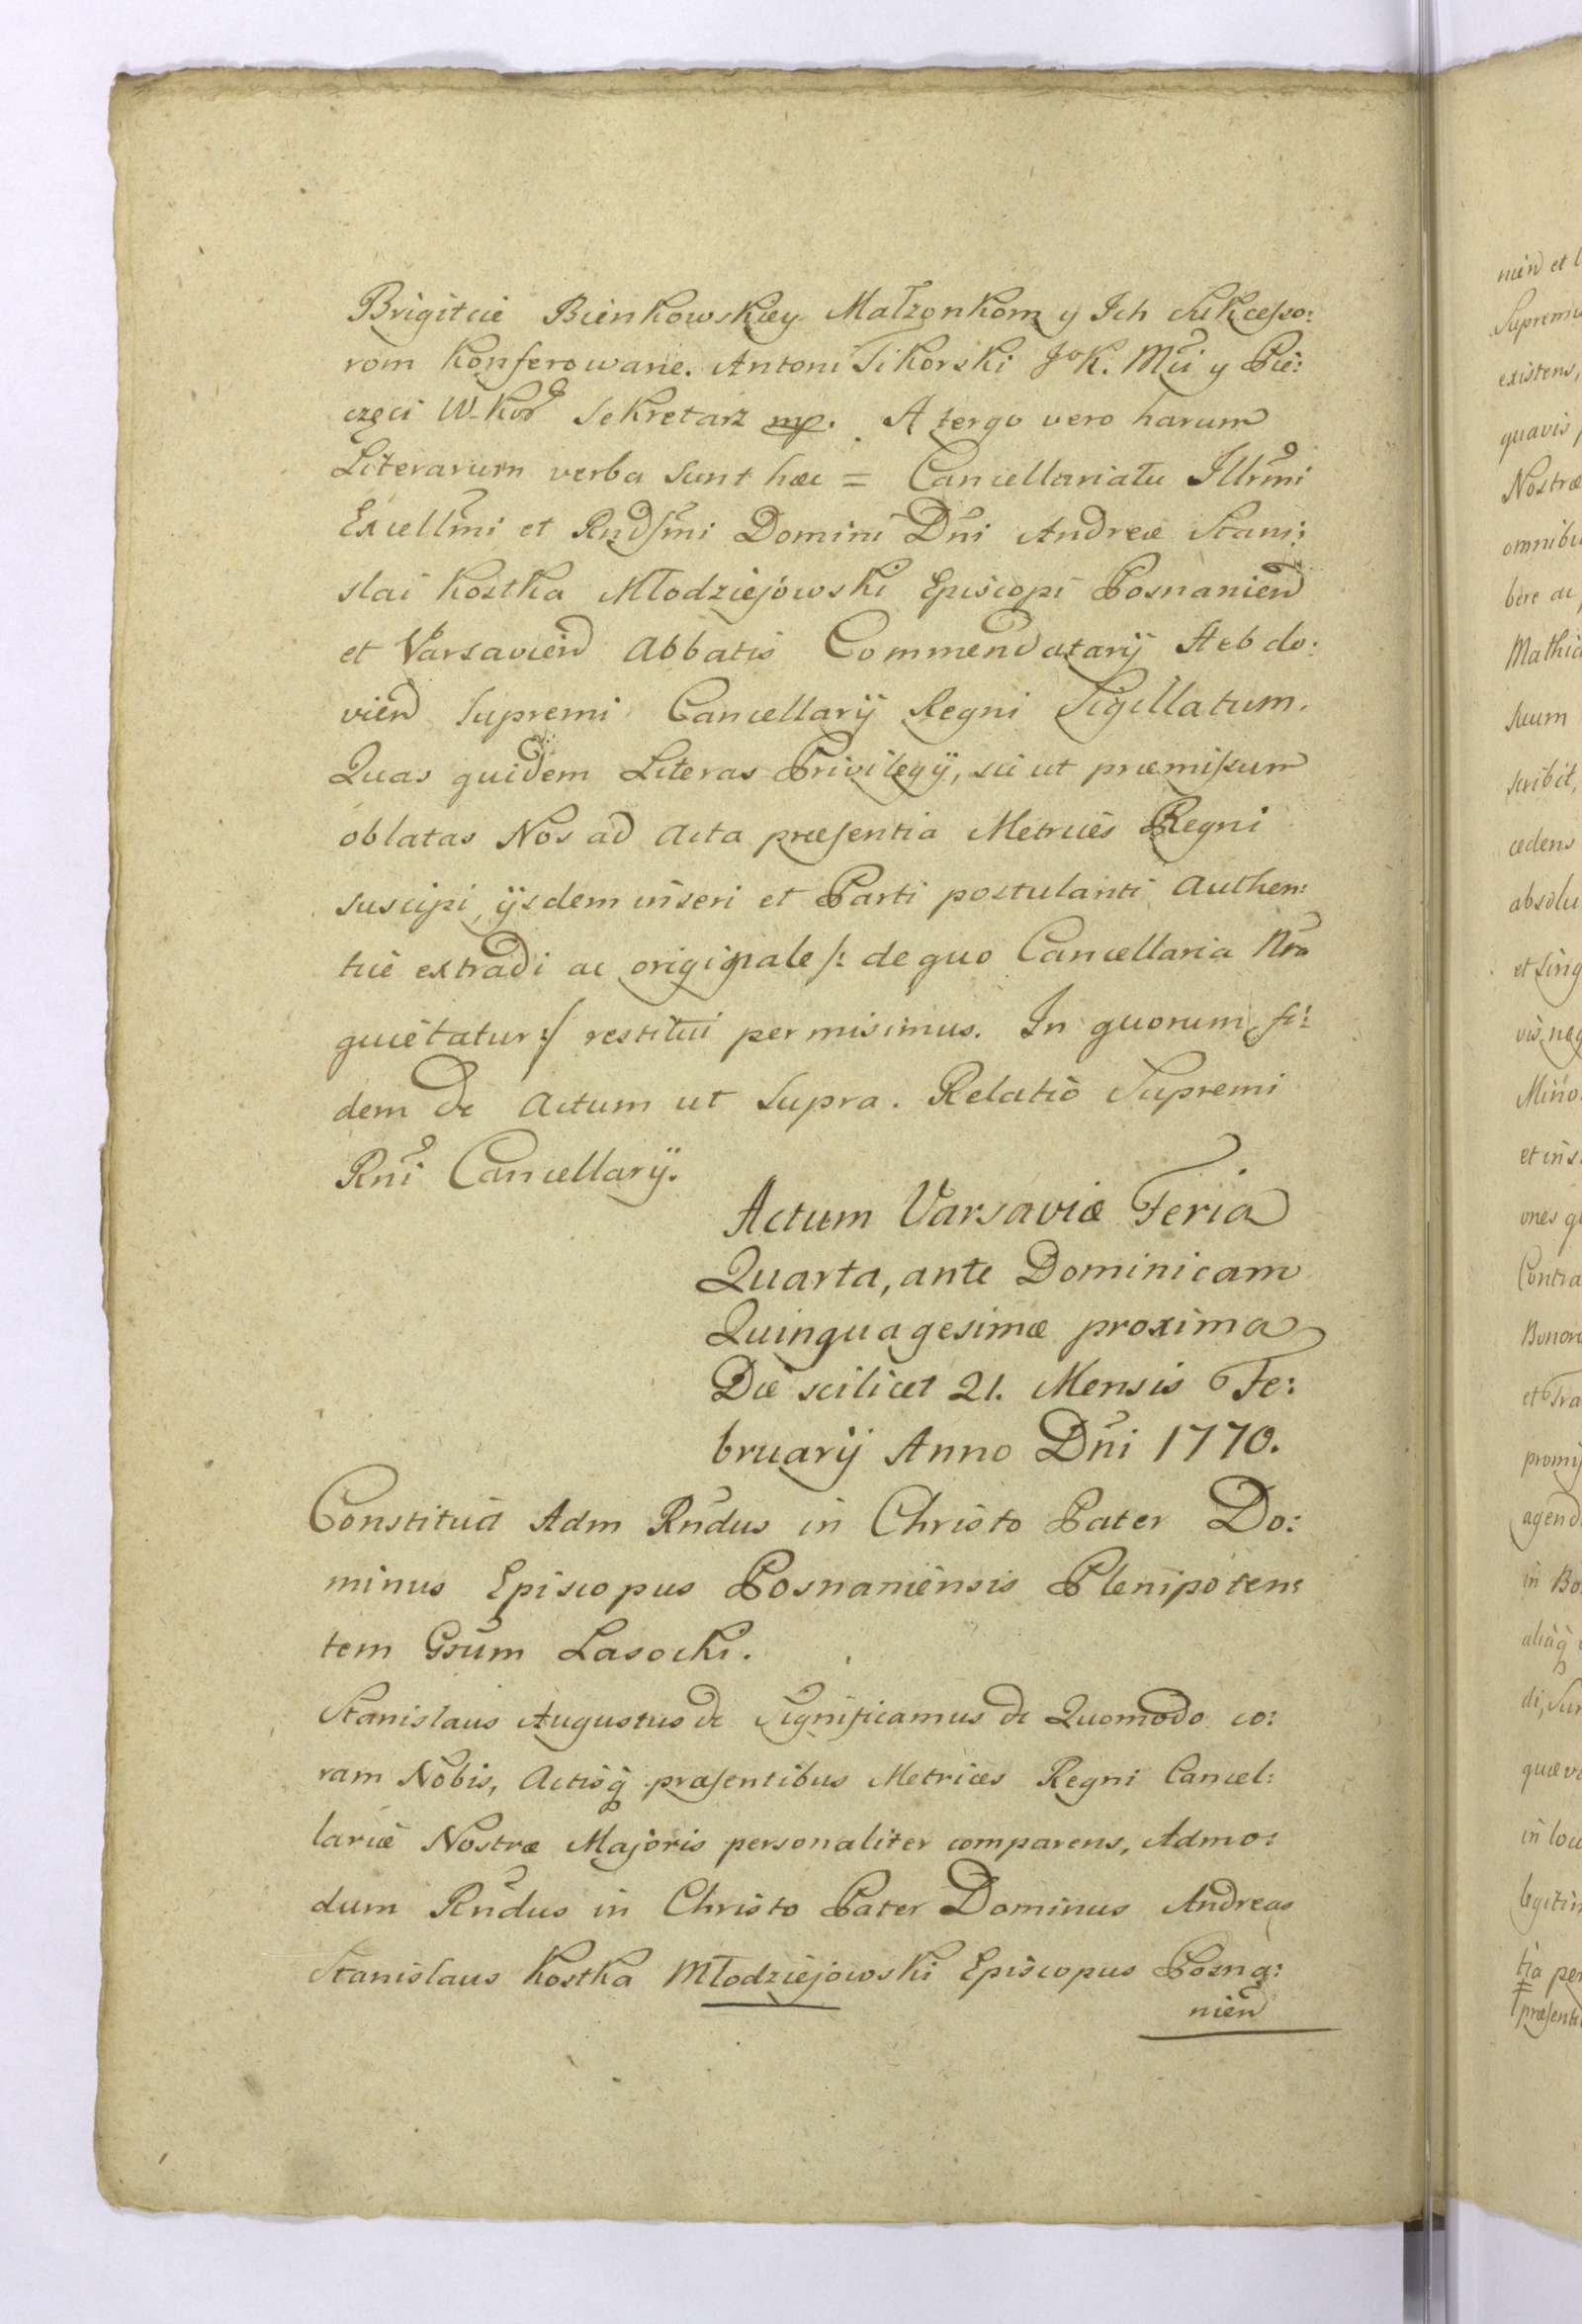 Brigitcie Bienkowskiey Małżonkom y Ich Sukcesso:
rom konferowane. Antoni Sikorski JoK. Mći y Pie:
częci W. Kor Sekretarz mp. A tergo vero harum
Literarum verba sunt hæc = Cancellariatu Illrmi
Excellmi et Rndssmi Domini Dni Andreæ Stani:
slai Kostka Młodziejowski Episcopi Posnanien
et Varsavien Abbatis Commendatarij Hebdo:
vien Supremi Cancellarij Regni Sigillatum.
Quas quidem Literas Privilegij, sic ut præmissum
oblatas Nos ad Acta præsentia Metrices Regni
suscipi, ijsdem inseri et Parti postulanti Authen:
tice extradi ac originale /: de quo Cancellaria Nra
quietatur :/ restitui permisimus. In quorum fi:
dem &c Actum ut supra. Relatio Supremi
Rni Cancellarij.
Actum Varsaviæ Feria
Quarta, ante Dominicam
Quinquagesimæ proxima
Die scilicet 21. Mensis Fe:
bruarij Anno Dni 1770.
Constituit Adm Rndus in Christo Pater Do:
minus Episcopus Posnaniensis Plenipoten:
tem Gsum Lasocki.
Stanislaus Augustus &c Significamus &c Quomodo co:
ram Nobis, Actisq præsentibus Metrices Regni Cancel:
lariæ Nostræ Majoris personaliter comparens, Admo:
dum Rndus in Christo Pater Dominus Andreas
Stanislaus Kostka Młodziejowski Episcopus Posna:
nien
nien et
Supremi
existens,
quavis
Nostræ
omnibu
bere ac
Mathia
suum
scribit,
cedens
absolu
et sing
vis neg
Mino
et ins
ones q
Contra
Bonor
et Tra
promi
agend
in Bo
aliaq
di, Su
quæ v
in loc
legitim
tia per
præsenti